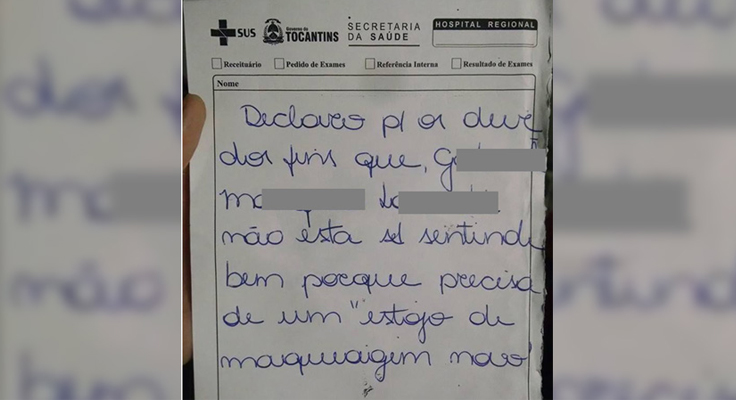 SUS
Governo do
TOCANTINS
SECRETARIA
DA SAÚDE
HOSPITAL REGIONAL
Receituário Pedido de Exames Referência Interna Resultado de Exames
Nome
Declaro p/ os devi
dos fins que, G
ma
não esta se sentindo
bem porque precisa
de um "estojo de
maquiagem novo"